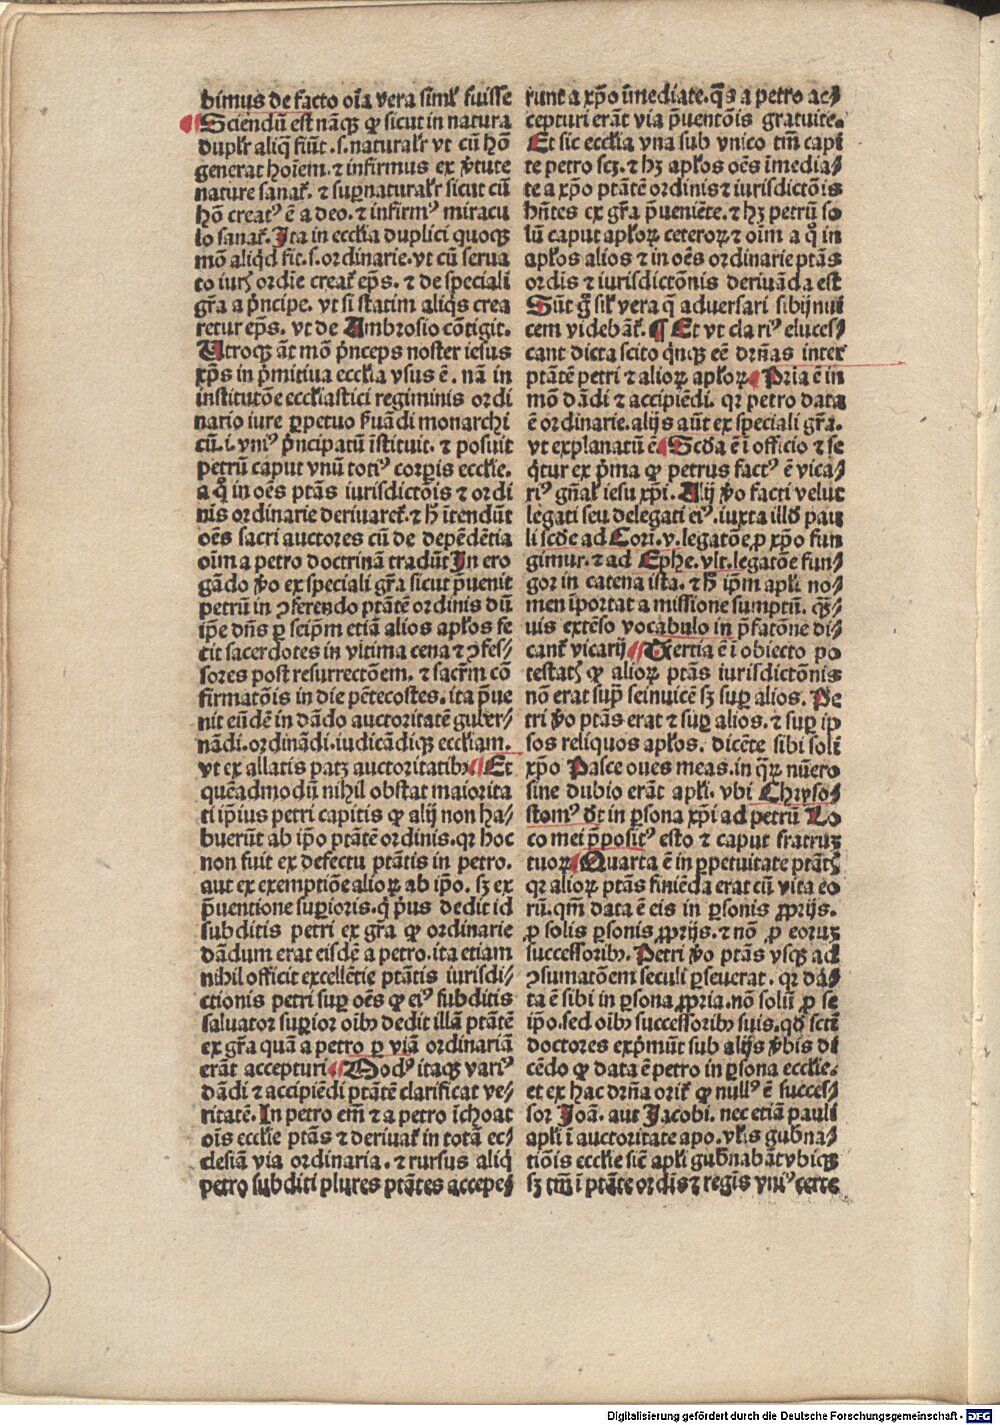 bimus de facto oīa vera simˡ fuisse
¶ Sciendū est nāqꝫ ꝙ sicut in natura
duplr̄ aliq̄ fiūt .s. naturalr̄ vt cū hō
generat hoīem. ⁊ infirmus ex v̓tute
nature sanat̄. ⁊ suꝑnaturalr̄ sicut cū
hō creatꝰ ē a deo. ⁊ infirmꝰ miracu
lo sanat̄. Ita in ecclīa duplici quoqꝫ
mō aliqd̄ fit. s. ordinarie. vt cū serua
to iurꝭ ordīe creat̄ ep̄s. ⁊ de speciali
gr̄a a p̓ncipe. vt si statim aliq̄s crea
retur ep̄s. vt de Ambrosio cōtigit.
Utroqꝫ āt mō p̓nceps noster iesus
xp̄s in p̓mitiua ecclīa vsus ē. nā in
institutōe ecclīastici regiminis ordi
nario iure ꝑpetuo ẜuādi monarchi
cū. i. vniꝰ p̓ncipatū īstituit. ⁊ posuit
petrū caput vnū totiꝰ corꝑis ecclīe.
a qͦ in oēs ptās iurisdictōis ⁊ ordi
nis ordinarie deriuaret̄. ⁊ h̄ ītendūt
oēs sacri auctores cū de depēdētia
oīm a petro doctrinā tradūt In ero
gādo v̓o ex speciali gr̄a sicut p̄uenit
petrū in ꝯferendo ptātē ordinis dū
ip̄e dn̄s ꝑ seip̄m etiā alios apl̄os fe
cit sacerdotes in vltima cena ⁊ ꝯfes⸗
sores post resurrectōem. ⁊ sacr̄m cō
firmatōis in die pētecostes. ita p̄ue
nit eūdē in dādo auctoritatē guber⸗
nādi. ordinādi. iudicādiqꝫ ecclīam.
vt ex allatis patꝫ auctoritatibꝰ ¶ Et
quēadmodū nihil obstat maiorita
ti ip̄ius petri capitis ꝙ alij non ha⸗
buerūt ab ip̄o ptātē ordinis. qꝛ hoc
non fuit ex defectu ptātis in petro.
aut ex exemptiōe alioꝝ ab ip̄o. sꝫ ex
p̄uentione suꝑioris. q̄ p̓us dedit id
subditis petri ex gr̄a ꝙ ordinarie
dādum erat eisdē a petro. ita etiam
nihil officit excellētie ptātis iurisdi⸗
ctionis petri suꝑ oēs ꝙ eiꝰ subditis
saluator suꝑior oībꝰ dedit illā ptātē
ex gr̄a quā a petro ꝑ viā ordinariā
erāt accepturi ¶ Modꝰ itaqꝫ variꝰ
dādi ⁊ accipiēdi ptātē clarificat ve⸗
ritatē. In petro em̄ ⁊ a petro īchoat
oīs ecclīe ptās ⁊ deriuat̄ in totā ec⸗
clesiā via ordinaria. ⁊ rursus aliq̄
petro subditi plures ptātes accepe⸗
runt a xp̄o īmediate. q̄s a petro ac⸗
cepturi erāt via p̄uentōis gratuite.
Et sic ecclīa vna sub vnico tm̄ capi
te petro scꝫ. ⁊ hꝫ apl̄os oēs īmedia⸗
te a xp̄o ptātē ordinis ⁊ iurisdictōis
hn̄tes ex gr̄a p̄ueniēte. ⁊ hꝫ petrū so
lū caput apl̄oꝝ ceteroꝝ ⁊ oīm a qͦ in
apl̄os alios ⁊ in oēs ordinarie ptās
ordīs ⁊ iurisdictōnis deriuāda est
Sūt g̊ silˡ vera q̄ aduersari sibijnui
cem videbāt̄. ¶ Et vt clariꝰ eluces⸗
cant dicta scito q̓nqꝫ eē dr̄ñas inter
ptātē petri ⁊ alioꝝ apl̄oꝝ ¶ Pria ē in
mō dādi ⁊ accipiēdi. qꝛ petro data
ē ordinarie. alijs aūt ex speciali gr̄a.
vt explanatū ē ¶ Scd̄a ē ī officio ⁊ se
q̓tur ex p̓ma ꝙ petrus factꝰ ē vica⸗
riꝰ gn̄alꝭ iesu xp̄i. Alij v̓o facti velut
legati seu delegati eiꝰ. iuxta illd̄ pau
li scd̄e ad Cori. v. legatōe ꝓ xp̄o fun
gimur. ⁊ ad Ephe. vlt. legatōe fun⸗
gor in catena ista. ⁊ h̄ ip̄m apl̄i no⸗
men īportat a missione sumptū. qꝫ⸗
uis extēso vocabulo in p̄fatōne di⸗
cant̄ vicarij ¶ Tertia ē ī obiecto po
testatꝭ ꝙ alioꝝ ptās iurisdictōnis
nō erat suꝑ seinuicē sꝫ suꝑ alios. Pe
tri v̓o ptās erat ⁊ suꝑ alios. ⁊ suꝑ ip̄
sos reliquos apl̄os. dicēte sibi soli
xp̄o Pasce oues meas. in q̄ꝝ nūero
sine dubio erāt apl̄i. vbi Chrysos⸗
stomꝰ d̄t in ꝑsona xp̄i ad petrū Lo
co mei p̄positꝰ esto ⁊ caput fratruꝫ
tuoꝝ ¶ Quarta ē in ꝑpetuitate ptātꝭ
qꝛ alioꝝ ptās finiēda erat cū vita eo
rū. qm̄ data ē eis in ꝑsonis ꝓprijs.
ꝓ solis ꝑsonis ꝓprijs. ⁊ nō ꝓ eoruꝫ
successoribꝰ. Petri v̓o ptās vsqꝫ ad
ꝯsumatōem seculi ꝑseuerat. qꝛ da⸗
ta ē sibi in ꝑsona ꝓpria. nō solū ꝓ se
ip̄o. sed oībꝰ successoribꝰ suis. qd̄ scti
doctores exp̓mūt sub alijs v̓bis di
cēdo ꝙ data ē petro in ꝑsona ecclīe.
et ex hac dr̄ña orit̄ ꝙ nullꝰ ē succes⸗
sor Joā. aut Jacobi. nec etiā pauli
apl̄i ī auctoritate apo. vl̄is gub̓na⸗
tiōis ecclīe sic̄ apl̄i gub̓nabāt vbiqꝫ
sꝫ tm̄ ī ptāte ordīs ⁊ regīs vniꝰ certe
Digitalisierung gefördert durch die Deutsche Forschungsgemeinschaft - DFG